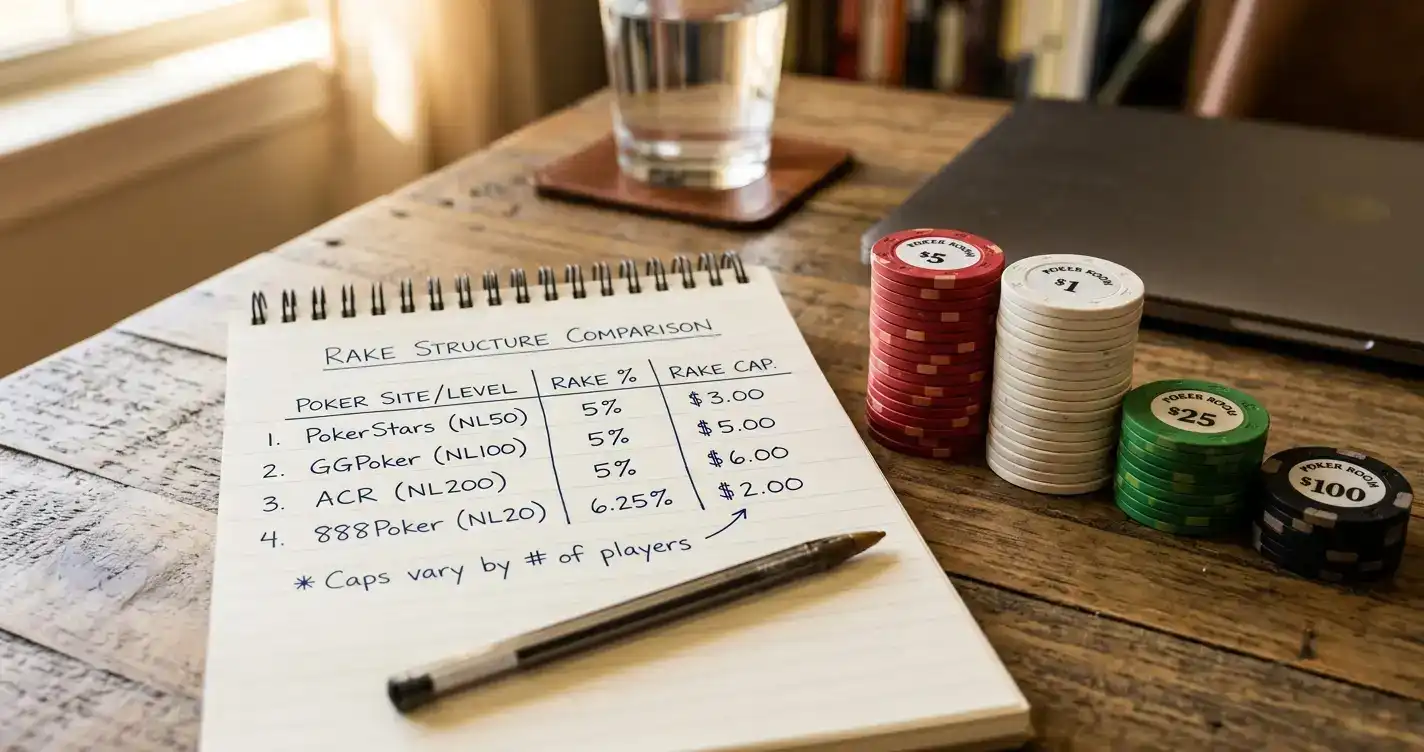 RAKE STRUCTURE COMPARISON
POKER SITE/LEVEL RAKE % RAKE CAP.
1. PokerStars (NL50) 5% $3.00
2. GGPoker (NL100) 5% $5.00
3. ACR (NL200) 5% $6.00
4. 888Poker (NL20) 6.25% $2.00
* Caps vary by # of players
POKER ROOM
$5
POKER ROOM
$1
POKER ROOM
$25
POKER ROOM
$100